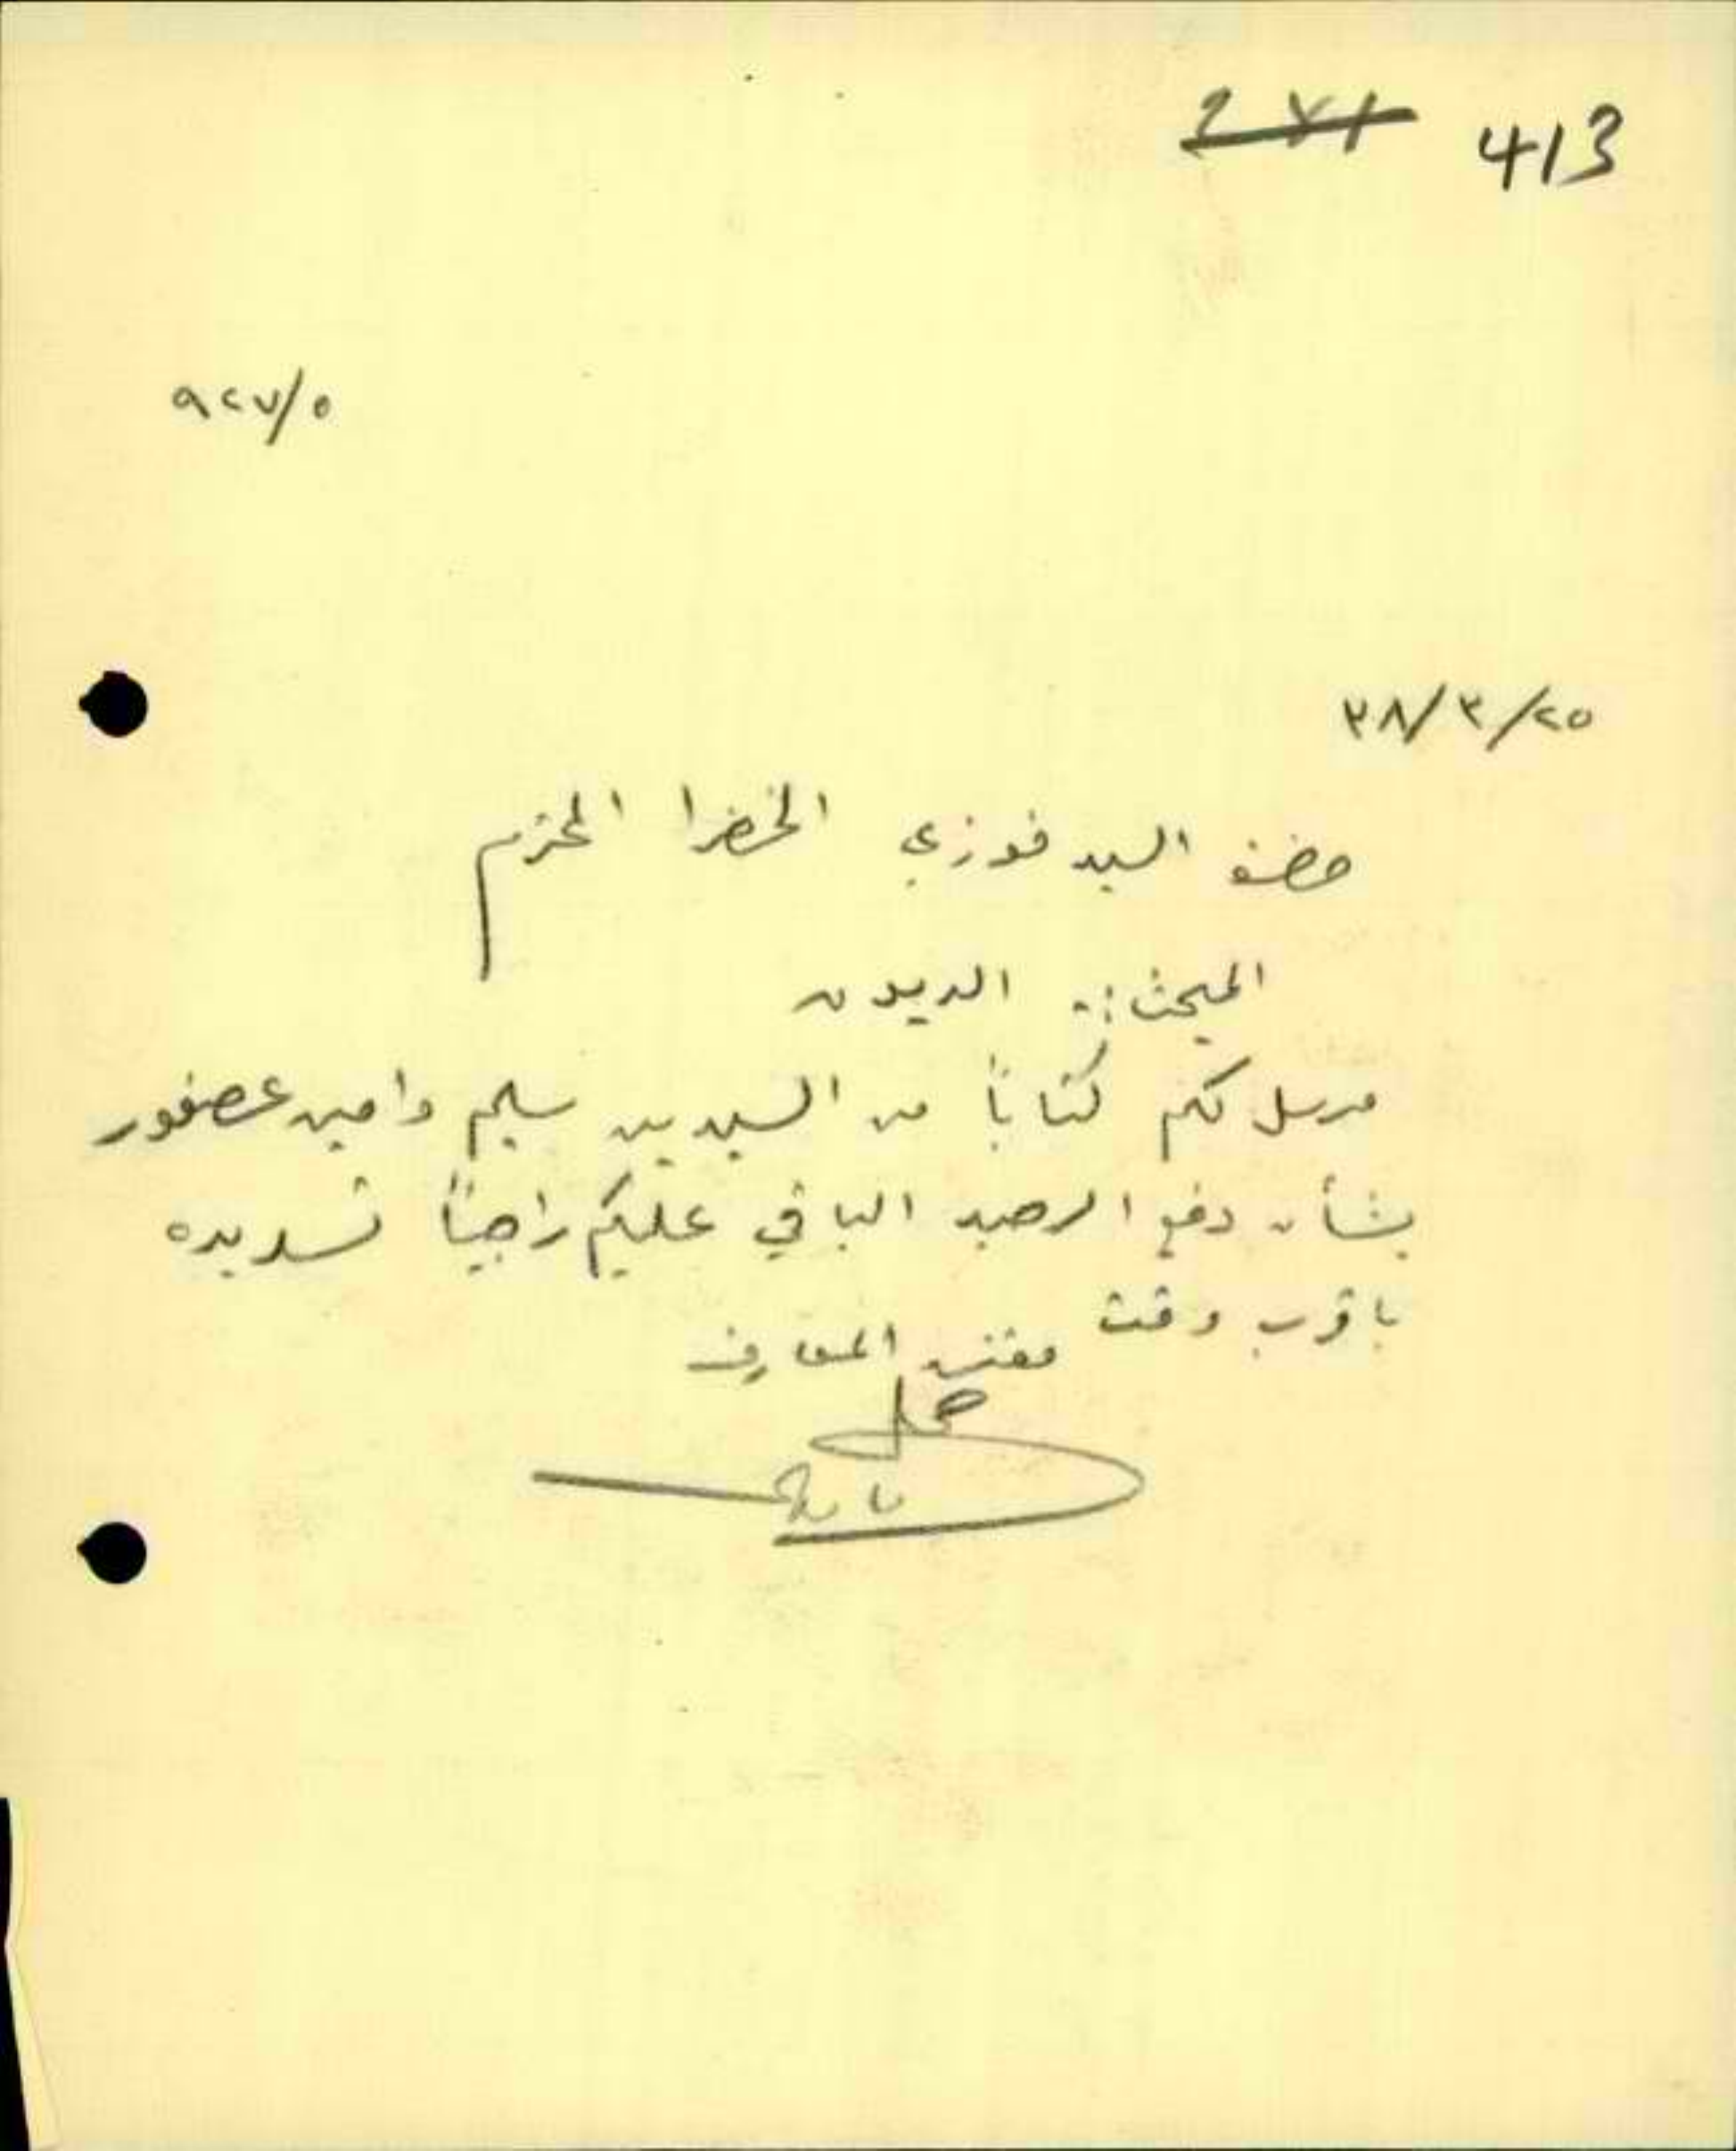 413
٩٢٧/٥
٢٥/٣/٣٨
حضرة السيد فوزي الخضرا المحترم
المبحث :- الديون
مرسل لكم كتاباً من السيدين سليم وامين عصفور
بشأن دفع الرصيد الباقي عليكم راجياً تسديده
باقرب وقت
مفتش المعارف